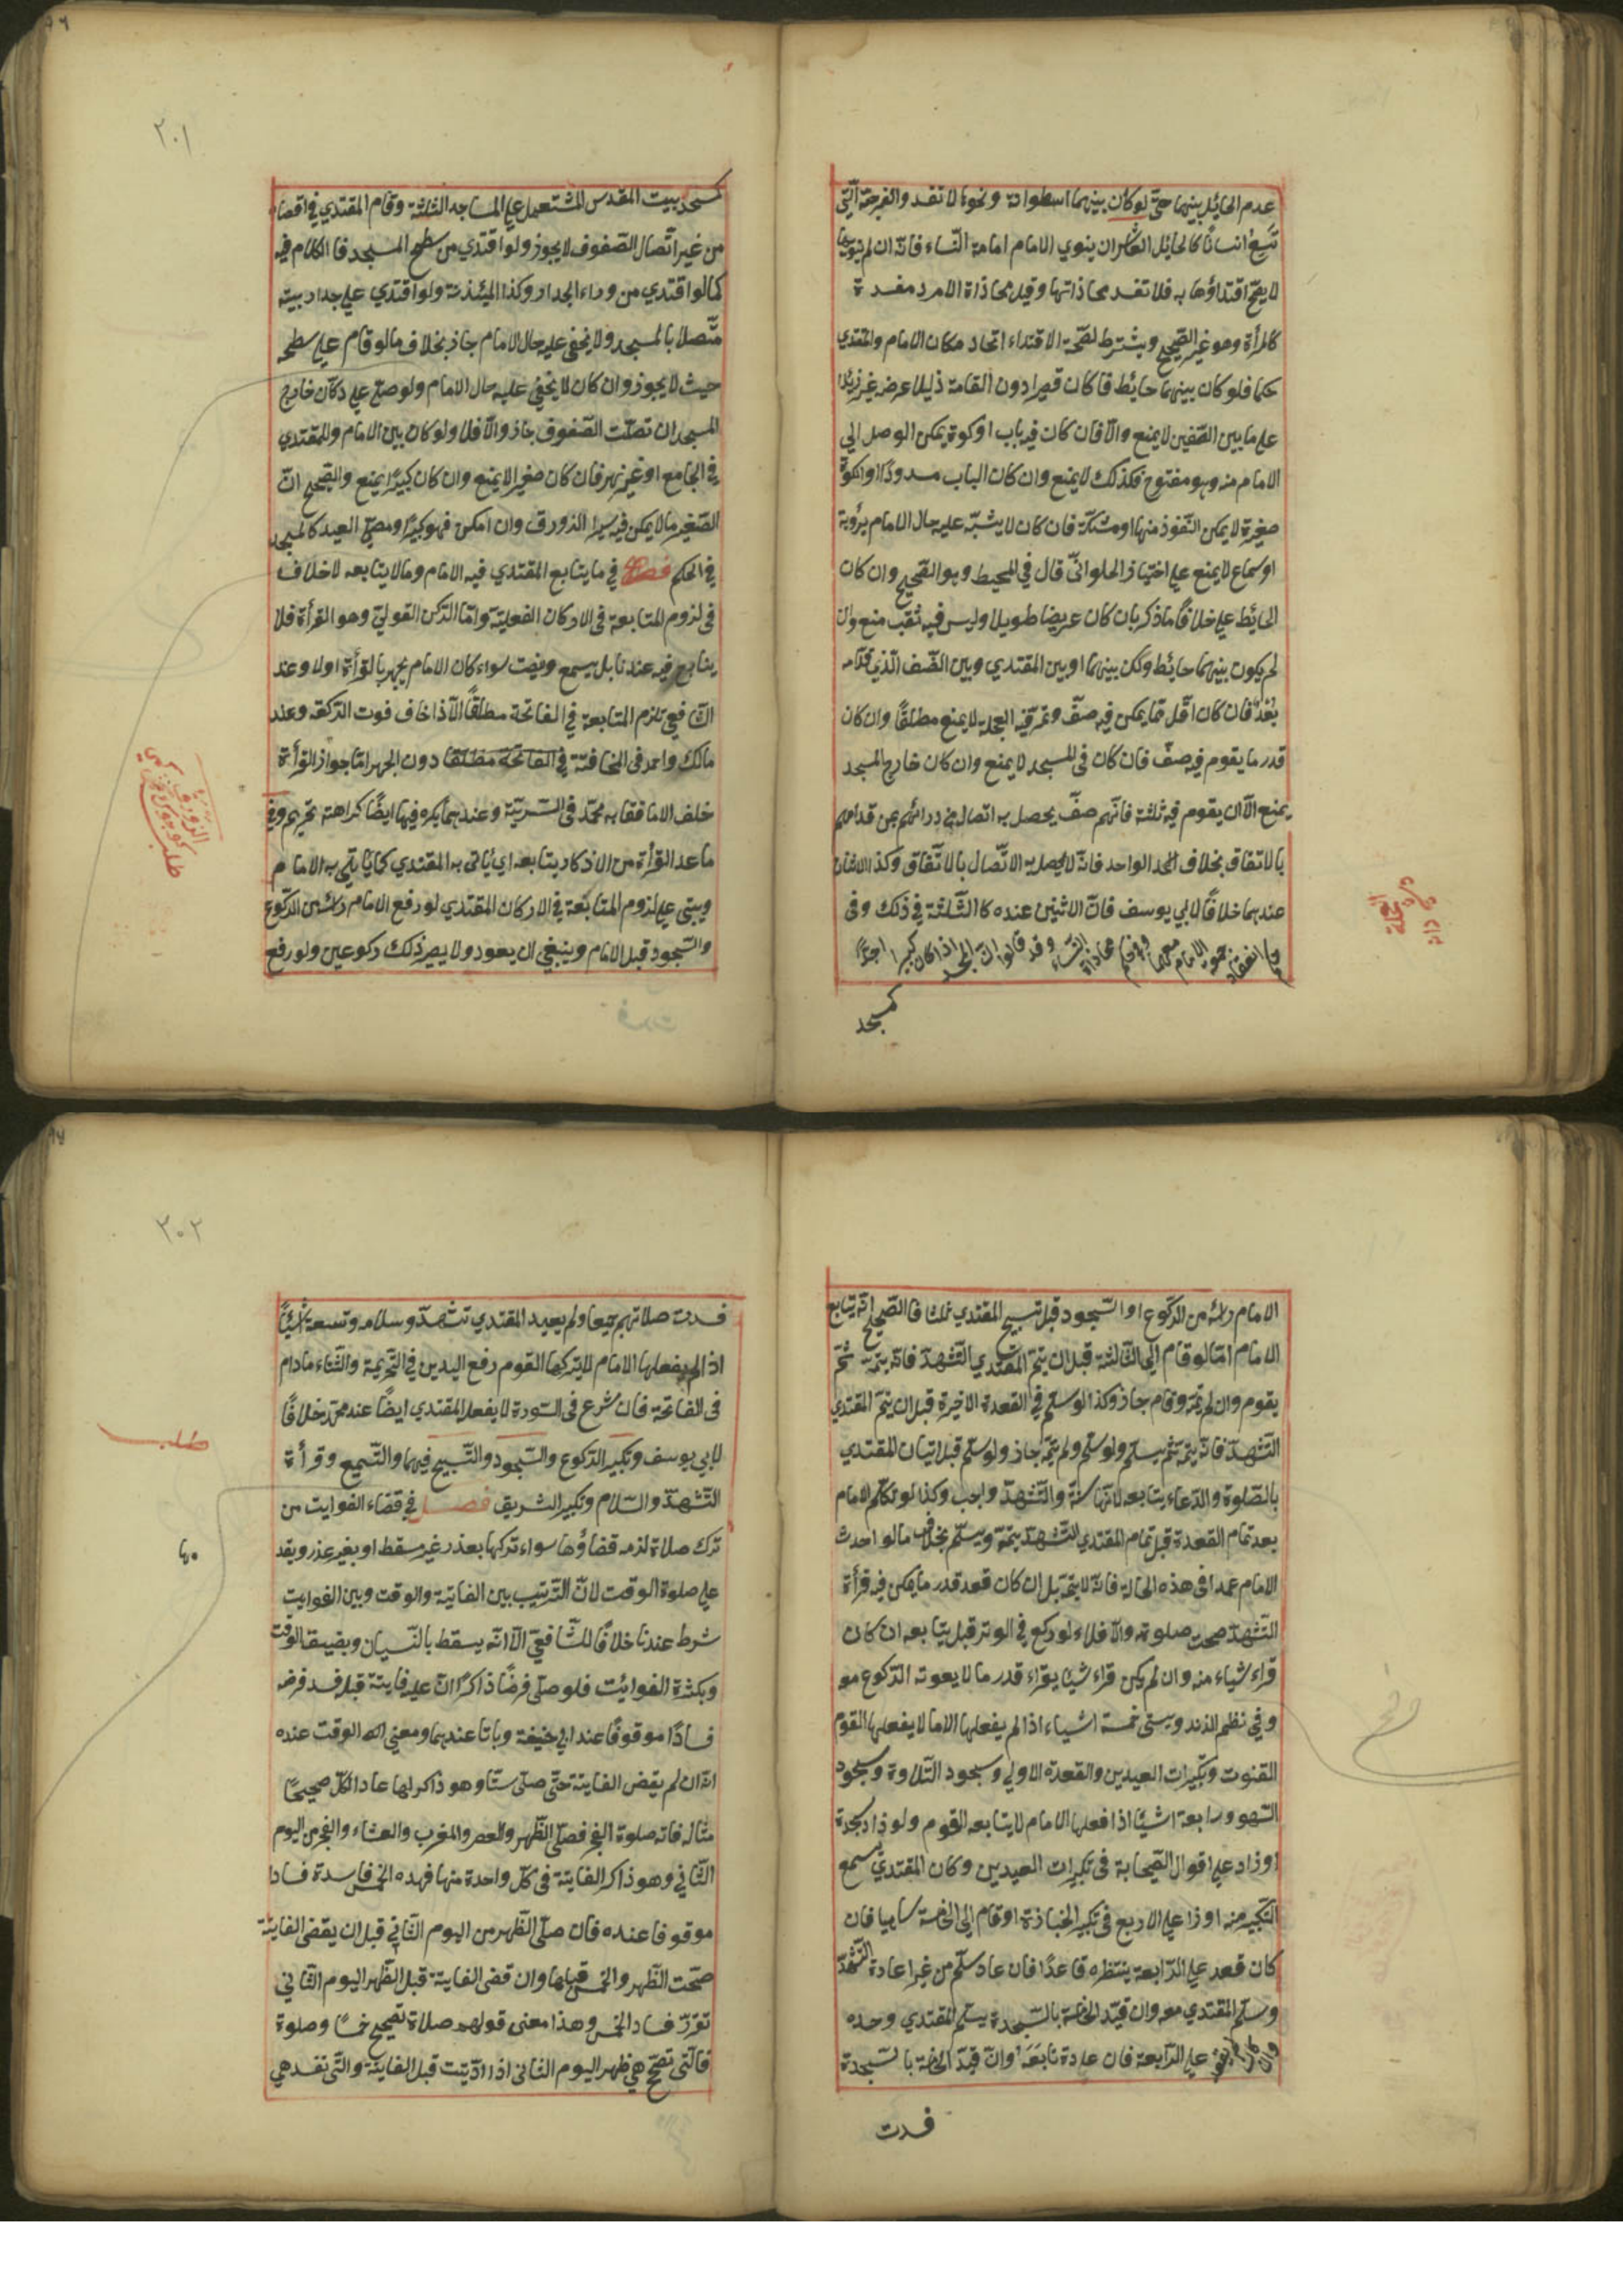 عدم الحائل بينهما حتى لو كان بينهما اسطوانة ونحوها لا تفسد والفرجة التي
تسع انسانا كالحائل العاشر ان ينوي الامام امامة النساء فانه ان لم ينوها
لا يصح اقتداؤها به فلا تفسد محاذاتها وقيل محاذاة الامرد مفسدة
كالمرأة وهو غير الصحيح ويشترط لصحة الاقتداء اتحاد مكان الامام والمقتدي
حكما فلو كان بينهما حائط فا كان قصيرا دون القامة ذليلا عرضه غير زائدا
على ما بين الصفين لا يمنع والا فان كان فيه باب او كوة يمكن الوصل الي
الامام منه وهو مفتوح فكذلك لا يمنع وان كان الباب مسدودا او الكوة
صغيرة لا يمكن النفوذ منها او مشبكة فان كان لا يشبه عليه حال الامام برؤية
او سماع لا يمنع على اختيار الحلواني قال في المحيط وهو الصحيح وان كان
الحائط على خلاف ما ذكر بان كان عريضا طويلا وليس فيه ثقب منع وان
لم يكون بينهما حائط ولكن بينهما او بين المقتدي وبين الصف الذي قدامه
بعد فان كان اقل مما يمكن فيه صف وتمر فيه العجلة لا يمنع مطلقا وان كان
قدر ما يقوم فيه صف فان كان في المسجد لا يمنع وان كان خارج المسجد
يمنع الا ان يقوم فيه ثلثة فانهم صف يحصل به اتصال من ورائهم بمن قدامهم
بالاتفاق بخلاف الواحد فانه لا يحصل به الاتصال بالاتفاق وكذا الاثنان
عندهما خلافا لابي يوسف فان الاثنين عنده كالثلثة في ذلك وفى
انعقاد جمعة الامام معهما وفى محاذاة النساء وقد قالوا ان المسجد اذا كان كبيرا جدا
كمسجد
العجلة
٢٠١
كمسجد بيت المقدس المشتمل على المساجد الثلثة وقام المقتدي في اقصاه
من غير اتصال الصفوف لا يجوز ولو اقتدي من سطح المسجد فا الكلام فيه
كما لو اقتدي من وراء الجدار وكذا الميئذنة ولو اقتدي على جدار بيته
متصلا بالمسجد ولا يخفى عليه حال الامام جاز بخلاف ما لو قام على سطحه
حيث لا يجوز وان كان لا يخفي عليه حال الامام ولو صلى على دكان خارج
المسجد ان تصلت الصفوف جاز والا فلا ولو كان بين الامام وللمقتدي
في الجامع او غيره نهر فان كان صغيرا لا يمنع وان كان كبيرا يمنع والصحيح ان
الصغير ما لا يمكن فيه سيرا الزورق وان امكن فهو كبيرا ومصلى العيد كالمسجد
في الحكم فصل في ما يتابع المقتدي فيه الامام وما لا يتابعه لا خلاف
فى لزوم المتابعة فى الاركان الفعلية واما الركن القولى وهو القرأة فلا
يتابع فيه عندنا بل يسمع وينصت سواء كان الامام يجهر بالقرأة اولا وعند
الشافعي تلزم المتابعة في الفاتحة مطلقا الا اذا خاف فوت الركعة وعند
مالك واحمد فى المخافتة في الفاتحة مطلقا دون الجهر اما جواز القرأة
خلف الاما فقا به محمد فى السرية وعندهما يكره فيها ايضا كراهته تحريم وفى
ما عدا القرأة من الاذكار يتابعه اي ئاتى به المقتدي كما ياتي به الامام
ويبتنى على لزوم المتابعة في الاركان المقتدي لو رفع الامام رأسه من الركوع
والسجود قبل الامام وينبغي ان يعود ولا يصير ذلك ركوعين ولو رفع
الزورق
طلب
الامام رأسه من الركوع او السجود قبل تسبيح المقتدي ثلثا فا الصحيح انه يتابع
الامام امّا لو قام الي الثالثة قبل ان يتم المقتدي التشهد فانه يتمه ثم
يقوم وان لم يتمه وقام جاز وكذا لو سلم في القعدة الاخيرة قبل ان يتم المقتدي
التشهد فانه يتمه ثم يسلم ولو سلم ولم يتمه جاز ولو سلم قبل اتيان المقتدي
بالصلوة والدعاء يتابعه لانها سنة والتشهد واجب وكذا لو تكلم الامام
بعد تمام القعدة قبل تمام المقتدي التشهد يتمه ويسلم بخلاف ما لو احدث
الامام عمدا فى هذه الحالة فانه لا يتمه بل ان كان قعد قدر ما يمكن فيه قرأة
التشهد صحت صلوته والا فلاء لو ركع في الوتر قبل يتابعه ان كان
قراء شياء منه وان لم يكن قراء شيئا يقراء قدر ما لا يعوته الركوع مع
وفي نظم الزند ويستى خمسة اشياء اذا لم يفعلها الاما لا يفعلها القوم
القنوت وتكبيرات العيدين والقعدة الاولي وسجود التلاوة وسجود
السهو ورابعة اشيئا اذا فعلها الامام لا يتابعه القوم ولو زاد سجدة
او زاد على اقوال الصحابة فى تكبيرات العيدين وكان المقتدي يسمع
التكبير منه او زا على الاربع فى تكبير الجنازة او قام الى الخامسة ساهيا فان
كان قعد على الرابعة ينتظره قاعدا فان عاد سلم من غير اعادة التشهد
وسلم المقتدي معه وان قيد الخامسة بالسجدة يسلم المقتدي وحده
وان كان لم يقعد على الرابعة فان عادة تابعه وان قيد الخامسة بالسجدة
فسدت
٢٠٢
فسدت صلاتهم جميعا ولم يعيد المقتدي تشهده وسلامه وتسعة اشيئا
اذا لم يفعلها الامام لا يتركها القوم رفع اليدين في التحريمة والثناء مادام
فى الفاتحة فان شرع فى السورة لا يفعله المقتدي ايضا عند محمد خلافا
لابي يوسف وتكبير الركوع والسجود والتسبيح فيهما والتسميع وقرأة
التشهد والسلام وتكبير الشريق فصل في قضاء الفوايت من
ترك صلاة لزمه قضاؤها سواء تركها بعذر غير مسقط او بغير عذر ويقد
على صلوة الوقت لان الترتيب بين الفايتة والوقت وبين الفوايت
شرط عندنا خلافا للشافعي الا انه يسقط بالنسيان وبضيق الوقت
وبكثرة الفوايئت فلو صلى فرضا ذاكرا ان عليه فايتة قبله فسد فرضه
فسادا موقوفا عند ابي حنيفة وباتا عندهما ومعني الوقت عنده
انه ان لم يقض الفايتة حتى صلى ستا وهو ذاكر لها عاد الكل صحيحا
مثاله فاته صلوة الفجر فصلى الظهر والعصر والمغرب والعشاء والفجر من اليوم
الثاني وهو ذاكر الفايتة فى كل واحدة منها فهذه الخمس فاسدة فسادا
موقوفا عنده فان صلى الظهر من اليوم الثاني قبل ان يقضى الفايتة
صحت الظهر والخمس قبلها وان قضى الفايتة قبل الظهر اليوم الثاني
تقرر فساد الخمس وهذا معنى قولهم صلاة تصحح خمسا وصلوة
فالتى تصح هي ظهر اليوم الثانى اذا ادّيت قبل الفايتة والتى تفسد هي
طلب